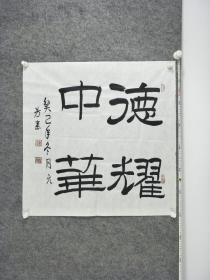 德耀
中華
癸巳年冬月